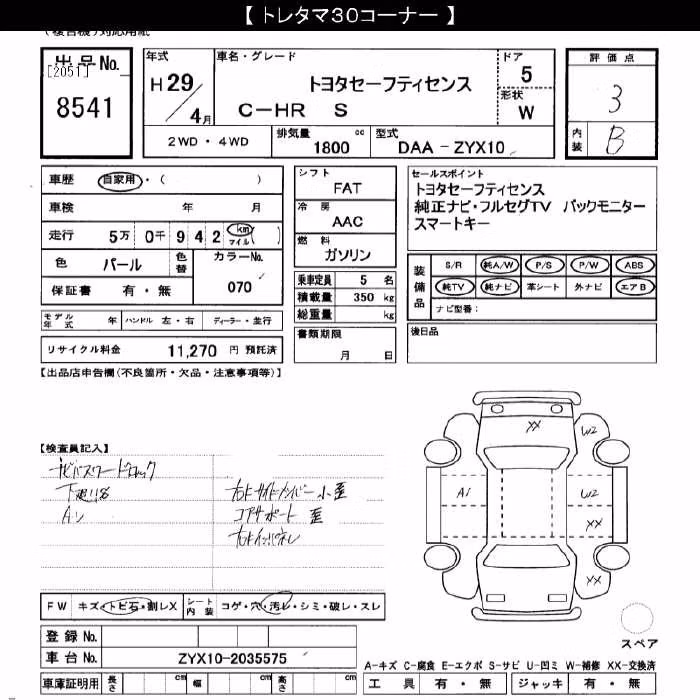 【 トレタマ30コーナー 】
(複合機)対応用紙
出品No.
[2051]
8541
年式
H 29/4月
車名・グレード
トヨタセーフティセンス
C-HR S
ドア
5
形状
W
評価点
3
内装
B
2WD・4WD
排気量
1800 cc
型式
DAA-ZYX10
車歴 自家用・( )
車検 年 月
走行 5万 0千 9 4 2 km マイル( )
色 パール
色替
カラーNo.
070
保証書 有・無
モデル年式 年
ハンドル 左・右
ディーラー・並行
リサイクル料金 11,270 円 預託済
シフト
FAT
冷房
AAC
燃料
ガソリン
乗車定員 5 名
積載量 350 kg
総重量 kg
書類期限
月 日
セールスポイント
トヨタセーフティセンス
純正ナビ・フルセグTV バックモニター
スマートキー
装備品
S/R 純A/W P/S P/W ABS
純TV 純ナビ 革シート 外ナビ エアB
ナビ型番:
後日品
【出品店申告欄(不良箇所・欠品・注意事項等)】
【検査員記入】
ナビパスワードロック
右サイドメンバー小歪
コアサポート 歪
XX
W2
A1
W2
XX
XX
FW キズ・トビ石・割レX
シート内装 コゲ・穴・汚レ・シミ・破レ・スレ
登録 No.
車台 No. ZYX10-2035575
車庫証明用 長さ cm 幅 cm 高さ cm
スペア
A-キズ C-腐食 E-エクボ S-サビ U-凹ミ W-補修 XX-交換済
工具 有・無 ジャッキ 有・無